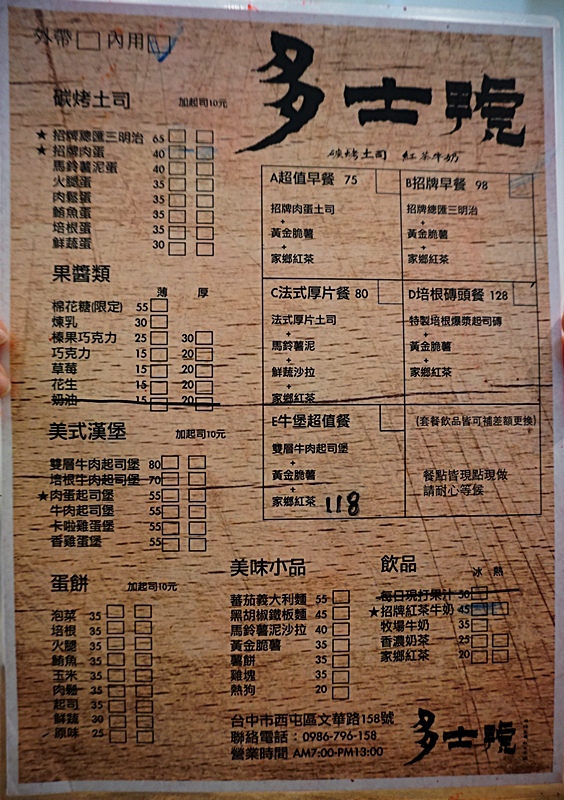 外帶 內用
多士號
碳烤土司 紅茶牛奶
碳烤土司 加起司10元
★ 招牌總匯三明治 65
★ 招牌肉蛋 40
馬鈴薯泥蛋 40
火腿蛋 35
肉鬆蛋 35
鮪魚蛋 35
培根蛋 35
鮮蔬蛋 30
果醬類
薄 厚
棉花糖(限定) 55
煉乳 30
榛果巧克力 25 30
巧克力 15 20
草莓 15 20
花生 15 20
奶油 15 20
美式漢堡 加起司10元
雙層牛肉起司堡 80
培根牛肉起司堡 70
★肉蛋起司堡 55
牛肉起司堡 55
卡啦雞蛋堡 55
香雞蛋堡 55
蛋餅 加起司10元
泡菜 35
培根 35
火腿 35
鮪魚 35
玉米 35
肉鬆 35
起司 35
鮮蔬 30
原味 25
A超值早餐 75
招牌肉蛋土司
+
黃金脆薯
+
家鄉紅茶
B招牌早餐 98
招牌總匯三明治
+
黃金脆薯
+
家鄉紅茶
C法式厚片餐 80
法式厚片土司
+
馬鈴薯泥
+
鮮蔬沙拉
+
家鄉紅茶
D培根磚頭餐 128
特製培根爆漿起司磚
+
黃金脆薯
+
家鄉紅茶
E牛堡超值餐
雙層牛肉起司堡
+
黃金脆薯
+
家鄉紅茶 118
(套餐飲品皆可補差額更換)
餐點皆現點現做
請耐心等候
美味小品
蕃茄義大利麵 55
黑胡椒鐵板麵 45
馬鈴薯泥沙拉 40
黃金脆薯 35
薯餅 35
雞塊 35
熱狗 20
飲品
冰 熱
每日現打果汁 50
★招牌紅茶牛奶 45
牧場牛奶 35
香濃奶茶 25
家鄉紅茶 20
台中市西屯區文華路158號
聯絡電話：0986-796-158
營業時間 AM7:00-PM13:00
多士號